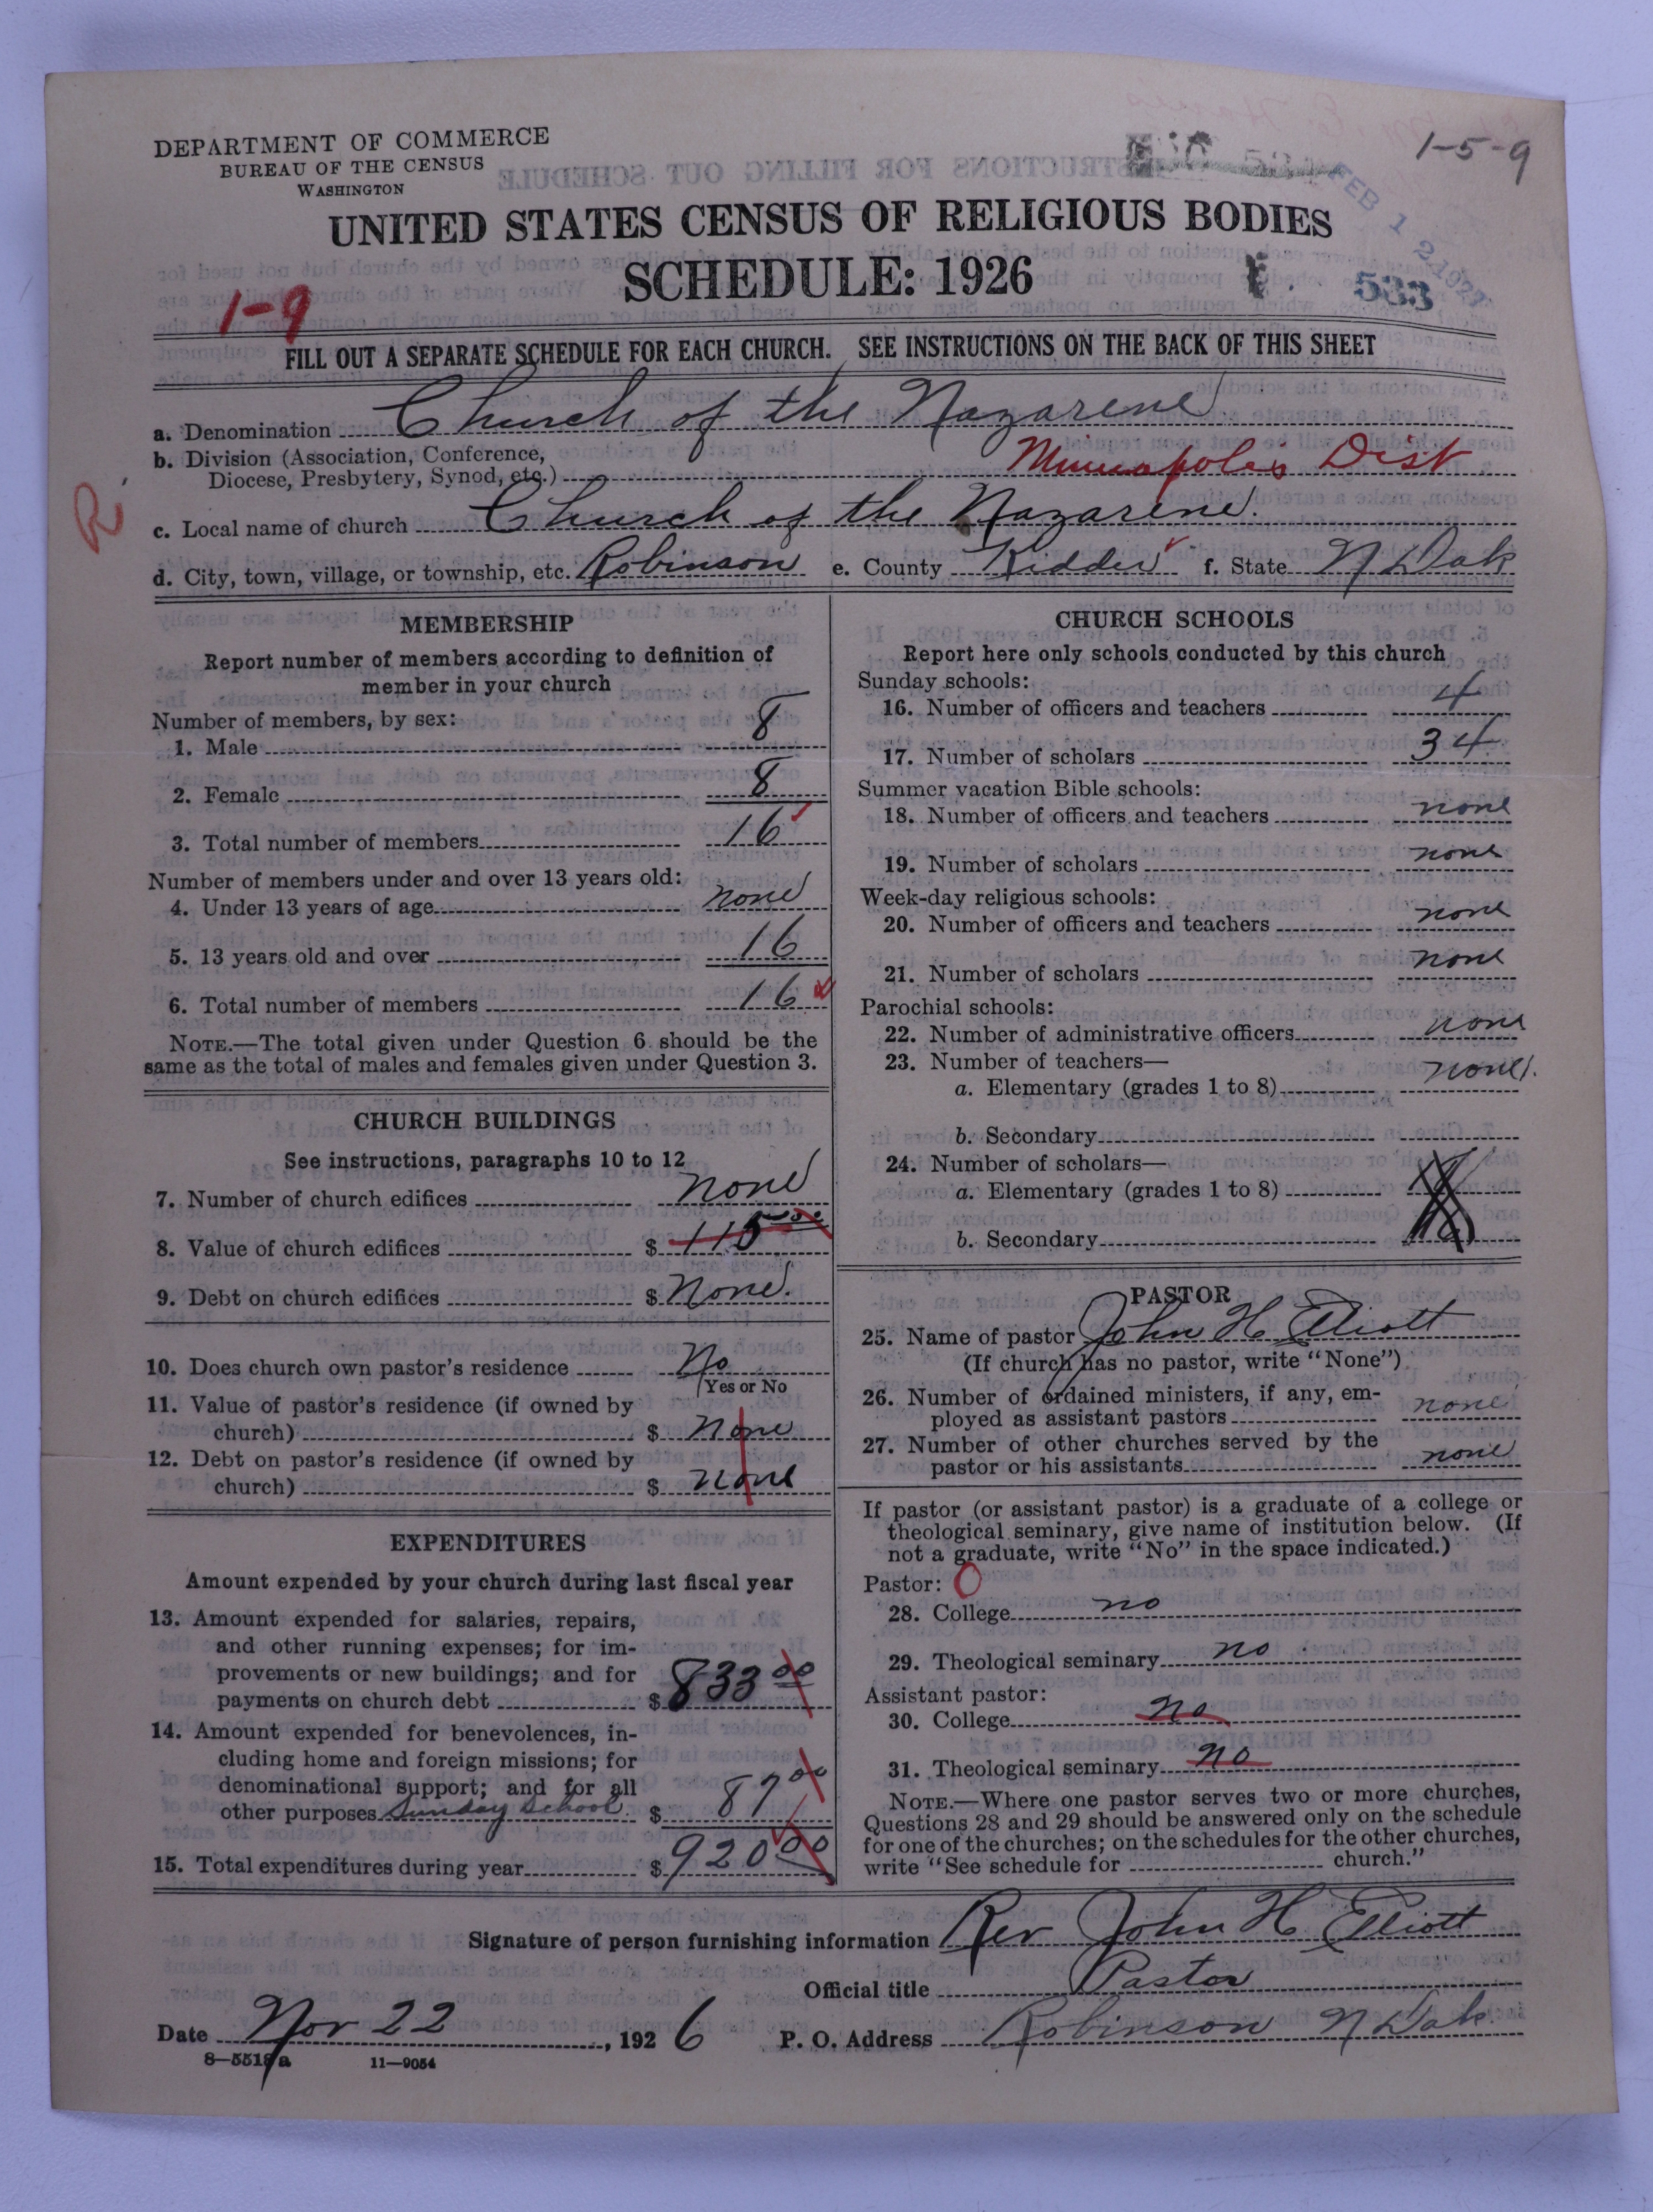 1-5-9
DEPARTMENT OF COMMERCE
BUREAU OF THE CENSUS
WASHINGTON
FEB 12 1927
UNITED STATES CENSUS OF RELIGIOUS BODIES
SCHEDULE: 1926
533
1-9
FILL OUT A SEPARATE SCHEDULE FOR EACH CHURCH. SEE INSTRUCTIONS ON THE BACK OF THIS SHEET
a. Denomination Church of the Nazarene
b. Division (Association, Conference,
Diocese, Presbytery, Synod, etc.) Minneapolis Dist
R
c. Local name of church Church of the Nazarene.
d. City, town, village, or township, etc. Robinson e. County Kidder f. State N Dak
MEMBERSHIP
Report number of members according to definition of
member in your church
Number of members, by sex:
1. Male 8
2. Female 8
3. Total number of members 16
Number of members under and over 13 years old:
4. Under 13 years of age none
5. 13 years old and over 16
6. Total number of members 16
NOTE.—The total given under Question 6 should be the
same as the total of males and females given under Question 3.
CHURCH BUILDINGS
See instructions, paragraphs 10 to 12
7. Number of church edifices none
8. Value of church edifices $
9. Debt on church edifices $ None.
10. Does church own pastor's residence No
Yes or No
11. Value of pastor's residence (if owned by
church) $ None
12. Debt on pastor's residence (if owned by
church) $ none
EXPENDITURES
Amount expended by your church during last fiscal year
13. Amount expended for salaries, repairs,
and other running expenses; for im-
provements or new buildings; and for
payments on church debt $ 833 00
14. Amount expended for benevolences, in-
cluding home and foreign missions; for
denominational support; and for all
other purposes Sunday School $ 87 00
15. Total expenditures during year $ 920 00
CHURCH SCHOOLS
Report here only schools conducted by this church
Sunday schools:
16. Number of officers and teachers 4
17. Number of scholars 34
Summer vacation Bible schools:
18. Number of officers and teachers none
19. Number of scholars none
Week-day religious schools:
20. Number of officers and teachers none
21. Number of scholars none
Parochial schools:
22. Number of administrative officers none
23. Number of teachers—
a. Elementary (grades 1 to 8) none
b. Secondary
24. Number of scholars—
a. Elementary (grades 1 to 8)
b. Secondary
PASTOR
25. Name of pastor John H Elliott
(If church has no pastor, write "None")
26. Number of ordained ministers, if any, em-
ployed as assistant pastors none
27. Number of other churches served by the
pastor or his assistants none
If pastor (or assistant pastor) is a graduate of a college or
theological seminary, give name of institution below. (If
not a graduate, write "No" in the space indicated.)
Pastor: O
28. College no
29. Theological seminary no
Assistant pastor:
30. College no
31. Theological seminary no
NOTE.—Where one pastor serves two or more churches,
Questions 28 and 29 should be answered only on the schedule
for one of the churches; on the schedules for the other churches,
write "See schedule for church."
Signature of person furnishing information Rev John H Elliott
Official title Pastor
Date Nov 22, 1926 P. O. Address Robinson N Dak.
8—5518a 11—9054